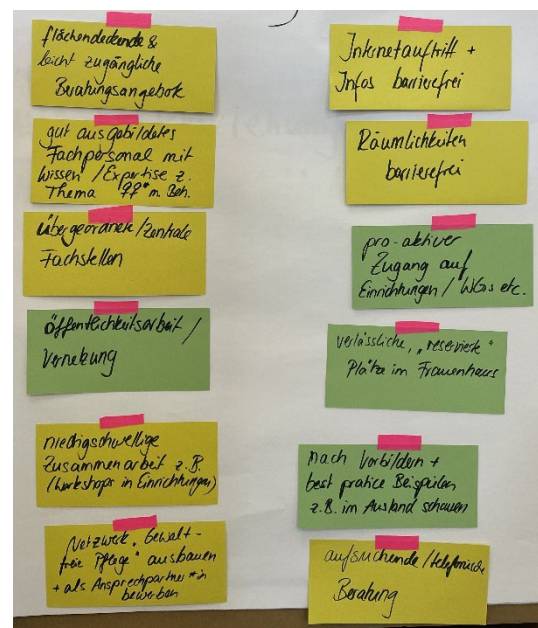 flächendeckende &
leicht zugängliche
Beratungsangebote
gut ausgebildetes
Fachpersonal mit
Wissen / Expertise z.
Thema "FF* m. Beh.
übergeordnete/zentrale
Fachstellen
öffentlichkeitsarbeit /
Vernetzung
niedrigschwellige
Zusammenarbeit z.B.
(Workshops in Einrichtungen)
Netzwerk „Gewalt-
freie Pflege" ausbauen
+ als Ansprechpartner*in
bewerben
Internetauftritt +
Infos barrierefrei
Räumlichkeiten
barrierefrei
pro-aktiver
Zugang auf
Einrichtungen / WGs etc.
verlässliche, „reservierte"
Plätze im Frauenhaus
nach Vorbildern +
best pratice Beispielen
z.B. im Ausland schauen
aufsuchende/telefonische
Beratung